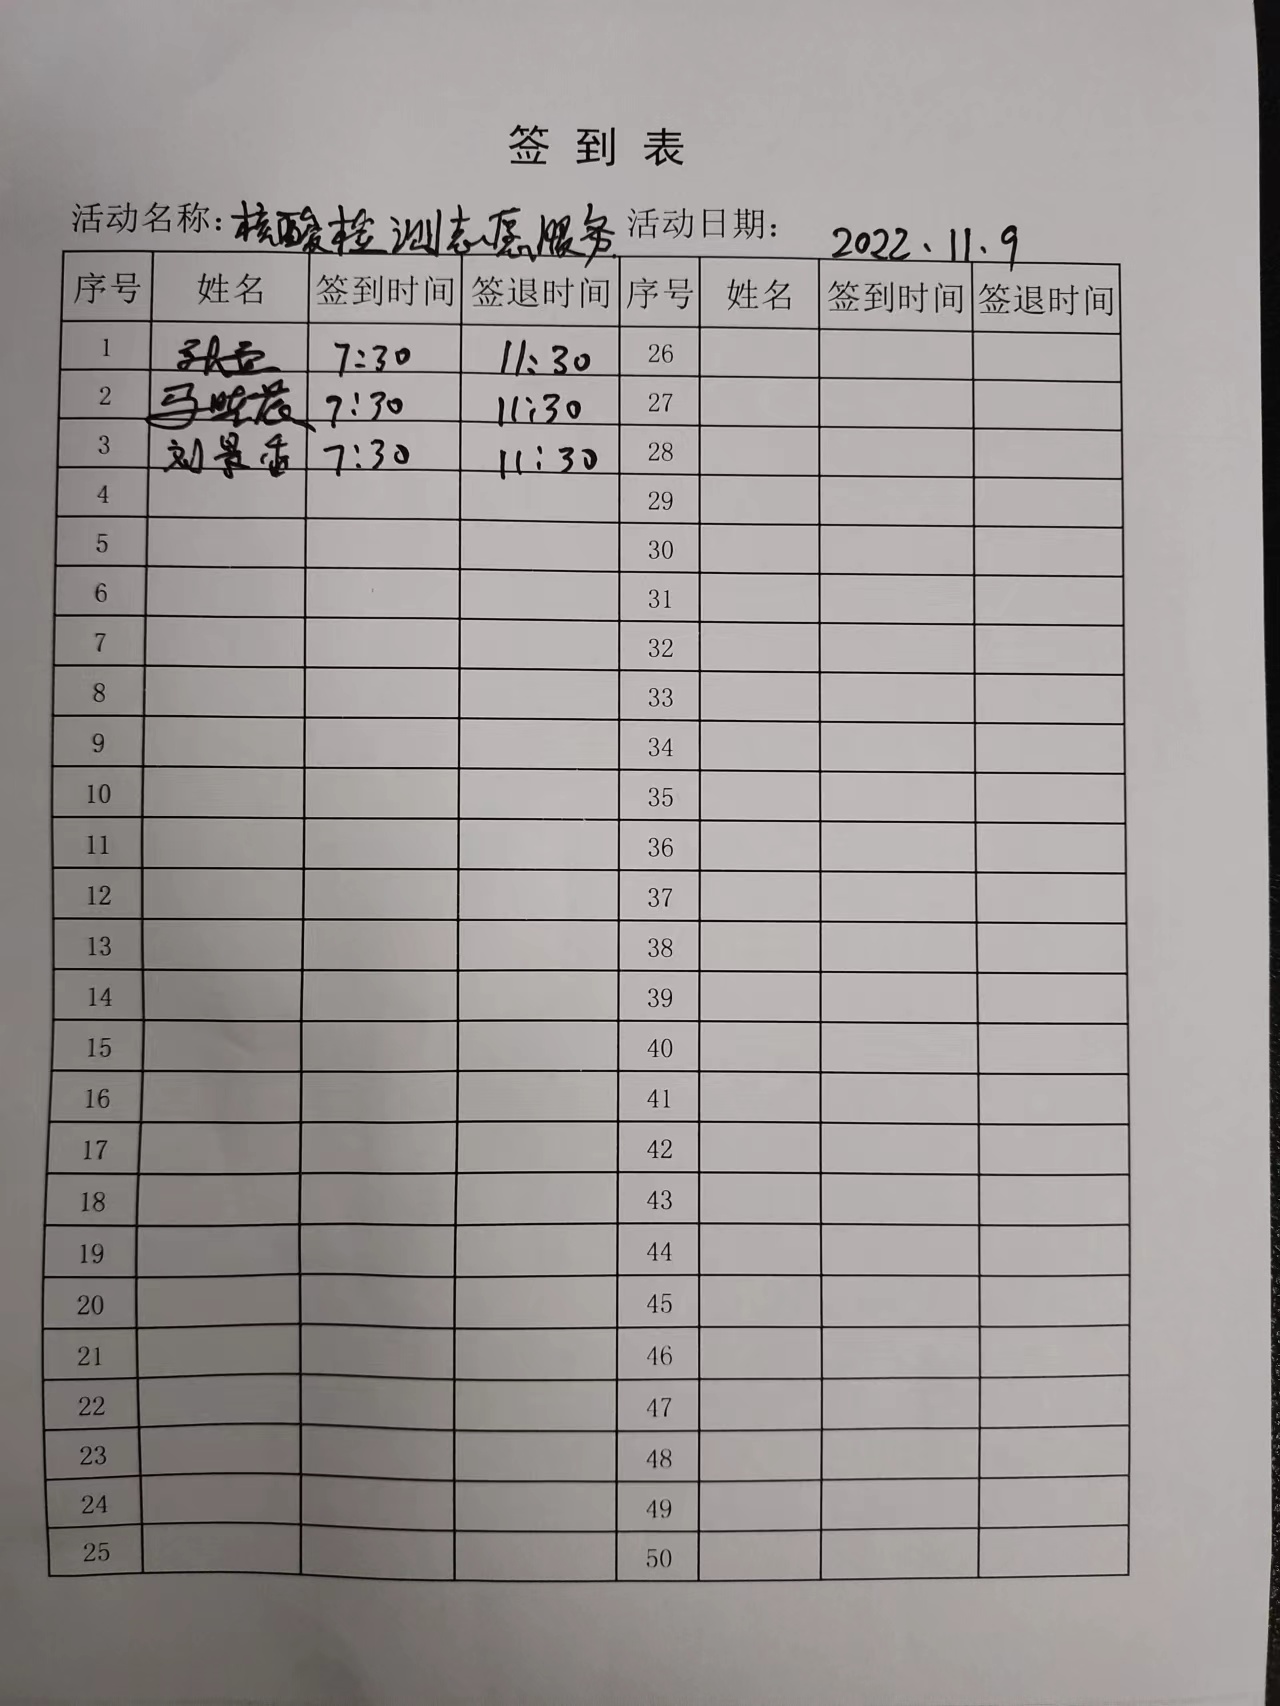 签到表
活动名称：核酸检测志愿服务 活动日期： 2022.11.9
序号 姓名 签到时间 签退时间 序号 姓名 签到时间 签退时间
1 7:30 11:30 26
2 马 7:30 11:30 27
3 刘景 7:30 11:30 28
4 29
5 30
6 31
7 32
8 33
9 34
10 35
11 36
12 37
13 38
14 39
15 40
16 41
17 42
18 43
19 44
20 45
21 46
22 47
23 48
24 49
25 50